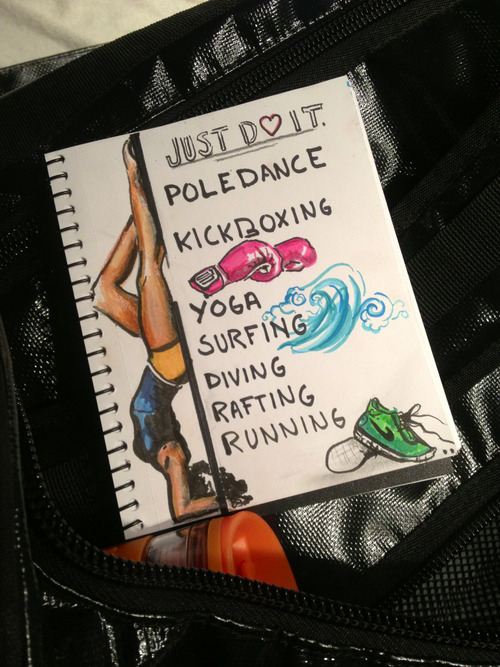 JUST DO IT.
POLEDANCE
KICKBOXING
YOGA
SURFING
DIVING
RAFTING
RUNNING